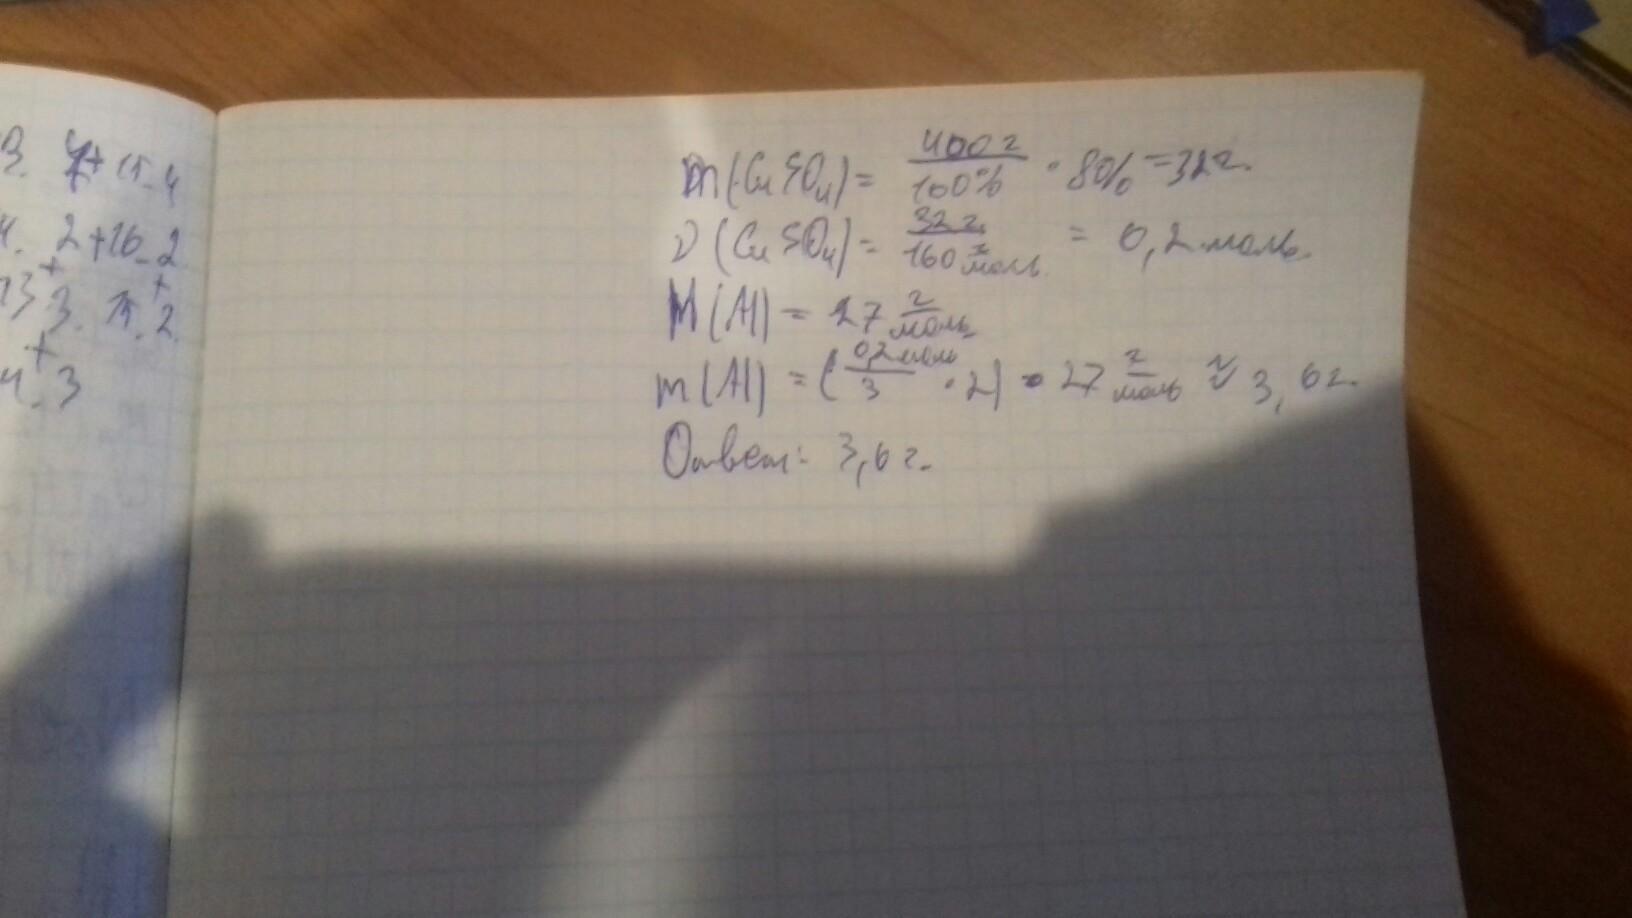 3. 4+15-4
4. 2+16-2
13+3. 15.2+
4+.3
m(CuSO₄) = 400г/100% · 8% = 32г.
ν(CuSO₄) = 32г/160 г/моль = 0,2 моль.
M(Al) = 27 г/моль
m(Al) = (0,2моль/3 · 2) · 27 г/моль ≈ 3,6г.
Ответ: 3,6г.